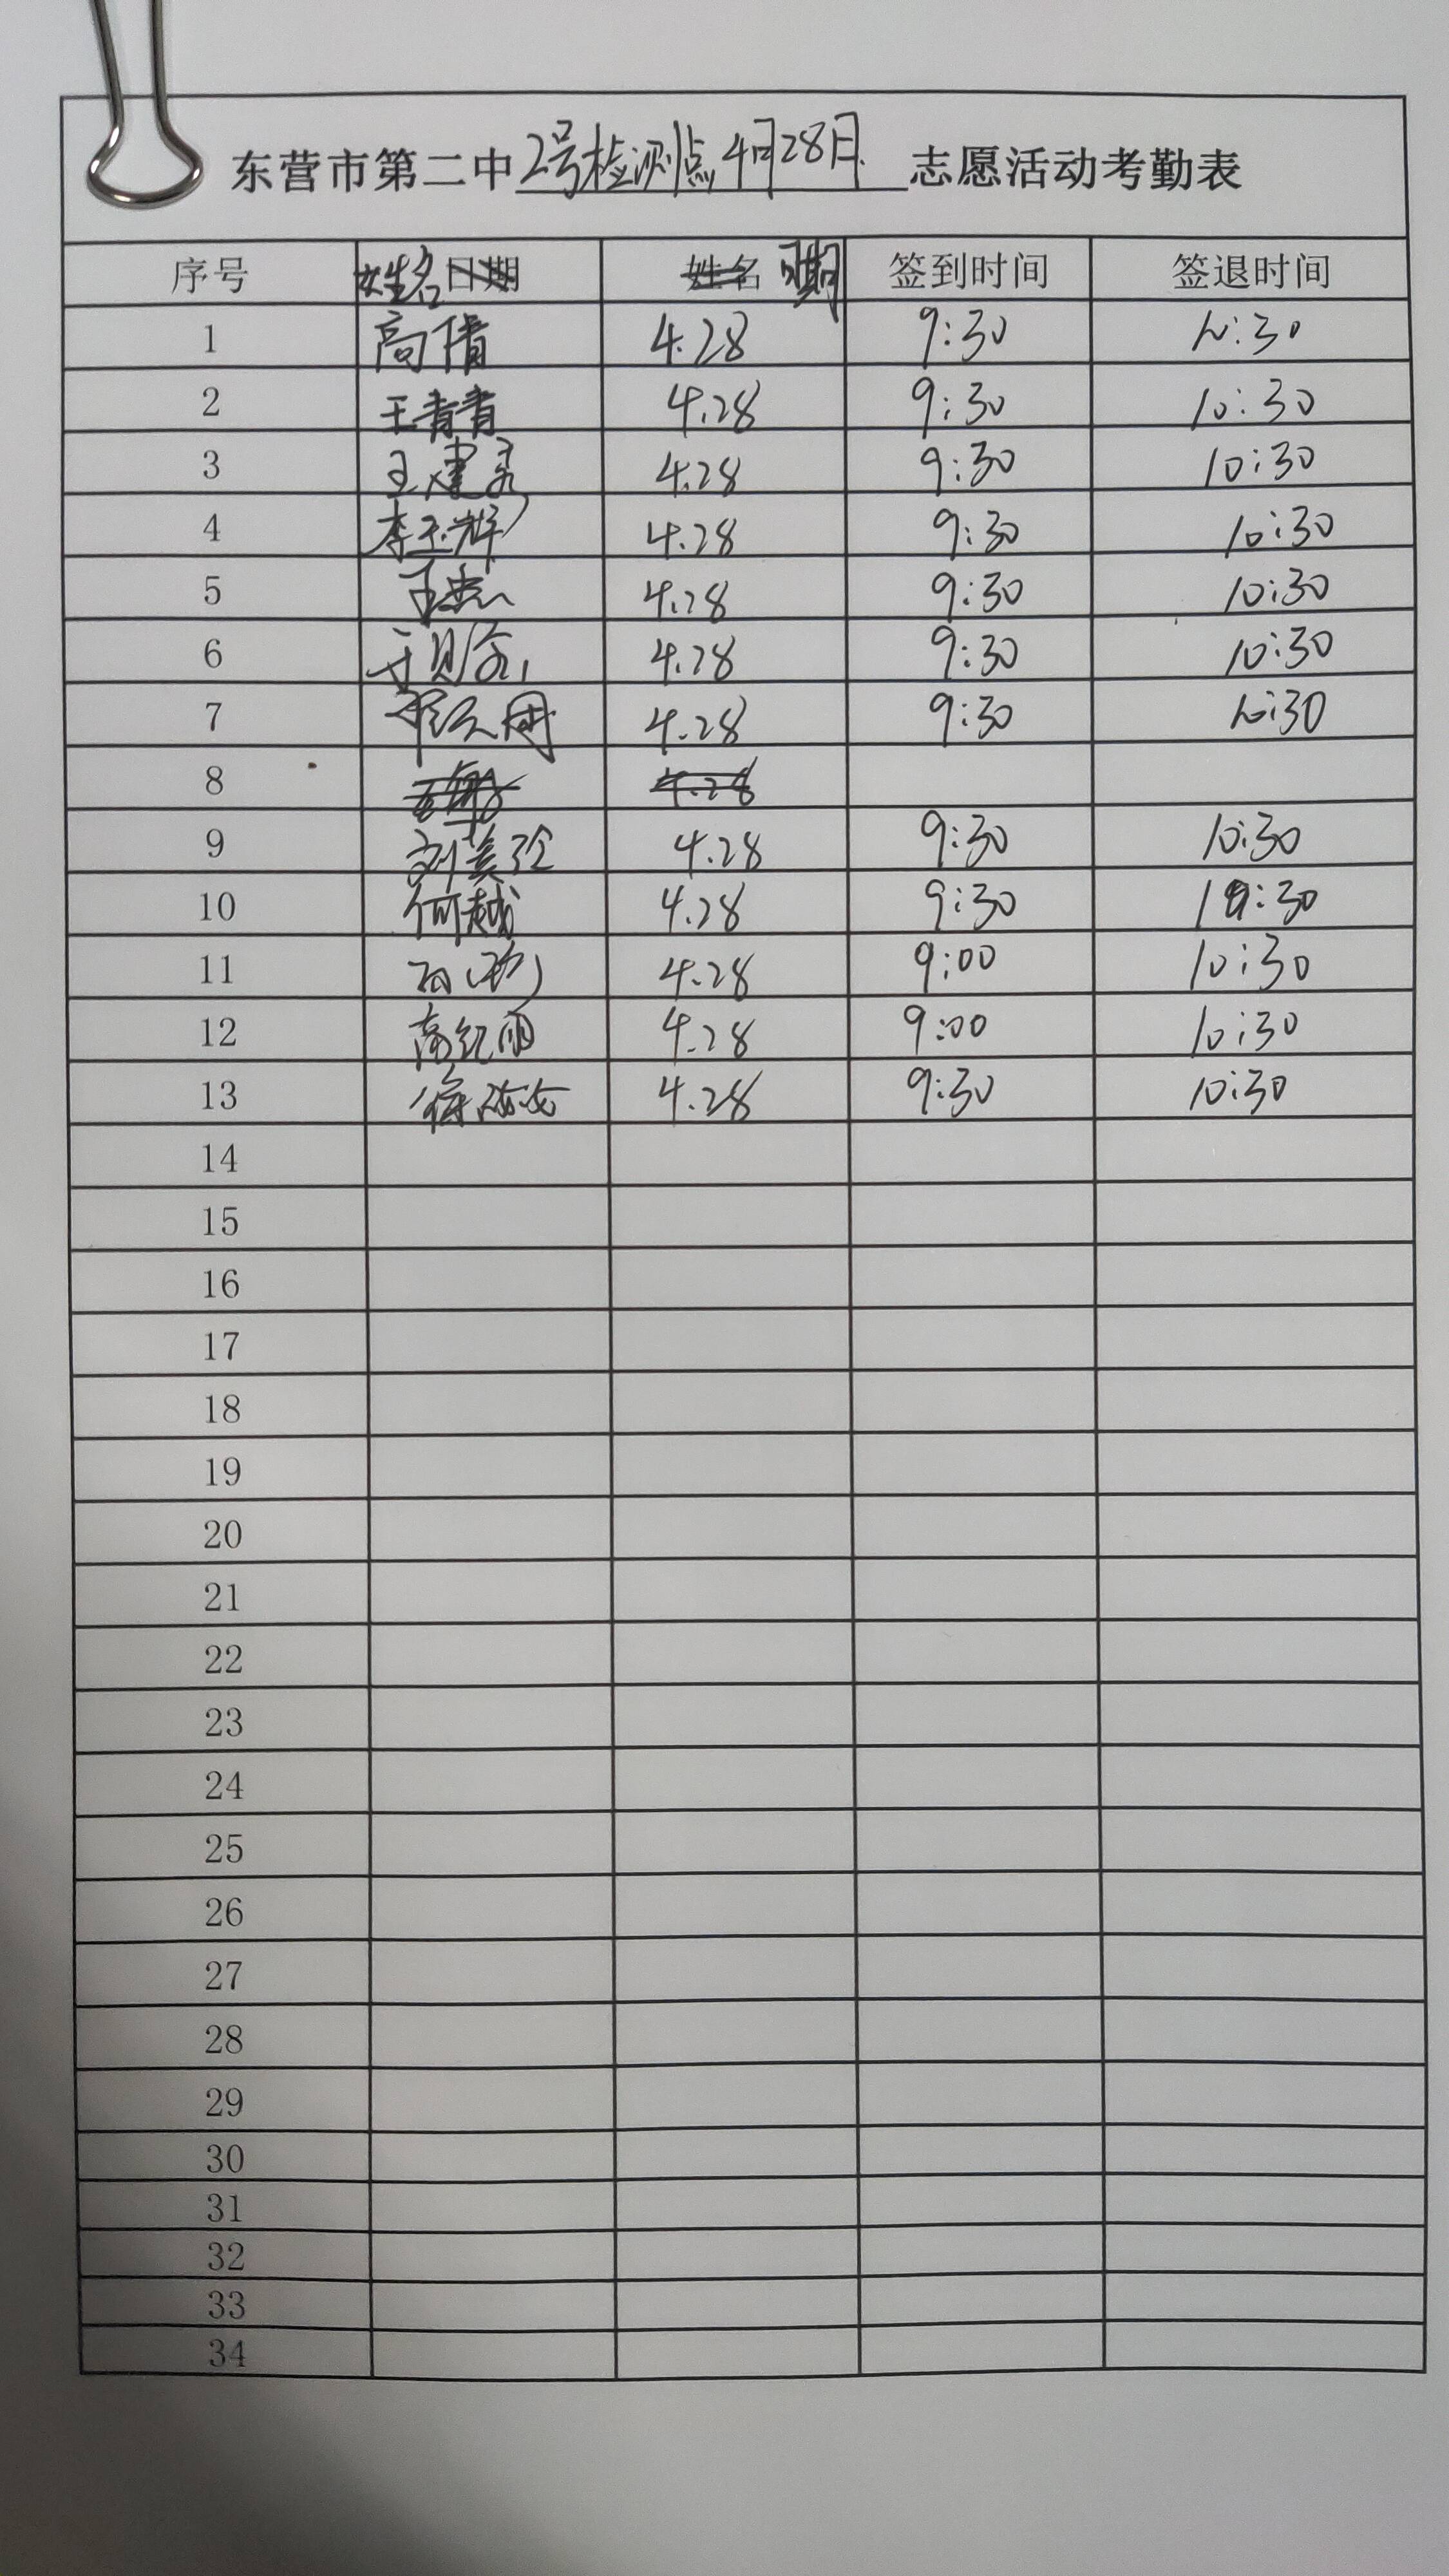 东营市第二中2号检测点4月28日志愿活动考勤表
序号 姓名日期 姓名 日期 签到时间 签退时间
1 高倩 4.28 9:30 10:30
2 王青青 4.28 9:30 10:30
3 王建 4.28 9:30 10:30
4 李玉辉 4.28 9:30 10:30
5 王 4.28 9:30 10:30
6 于 4.28 9:30 10:30
7 4.28 9:30 10:30
8 4.28
9 刘美玲 4.28 9:30 10:30
10 何越 4.28 9:30 10:30
11 4.28 9:00 10:30
12 4.28 9:00 10:30
13 徐 4.28 9:30 10:30
14
15
16
17
18
19
20
21
22
23
24
25
26
27
28
29
30
31
32
33
34